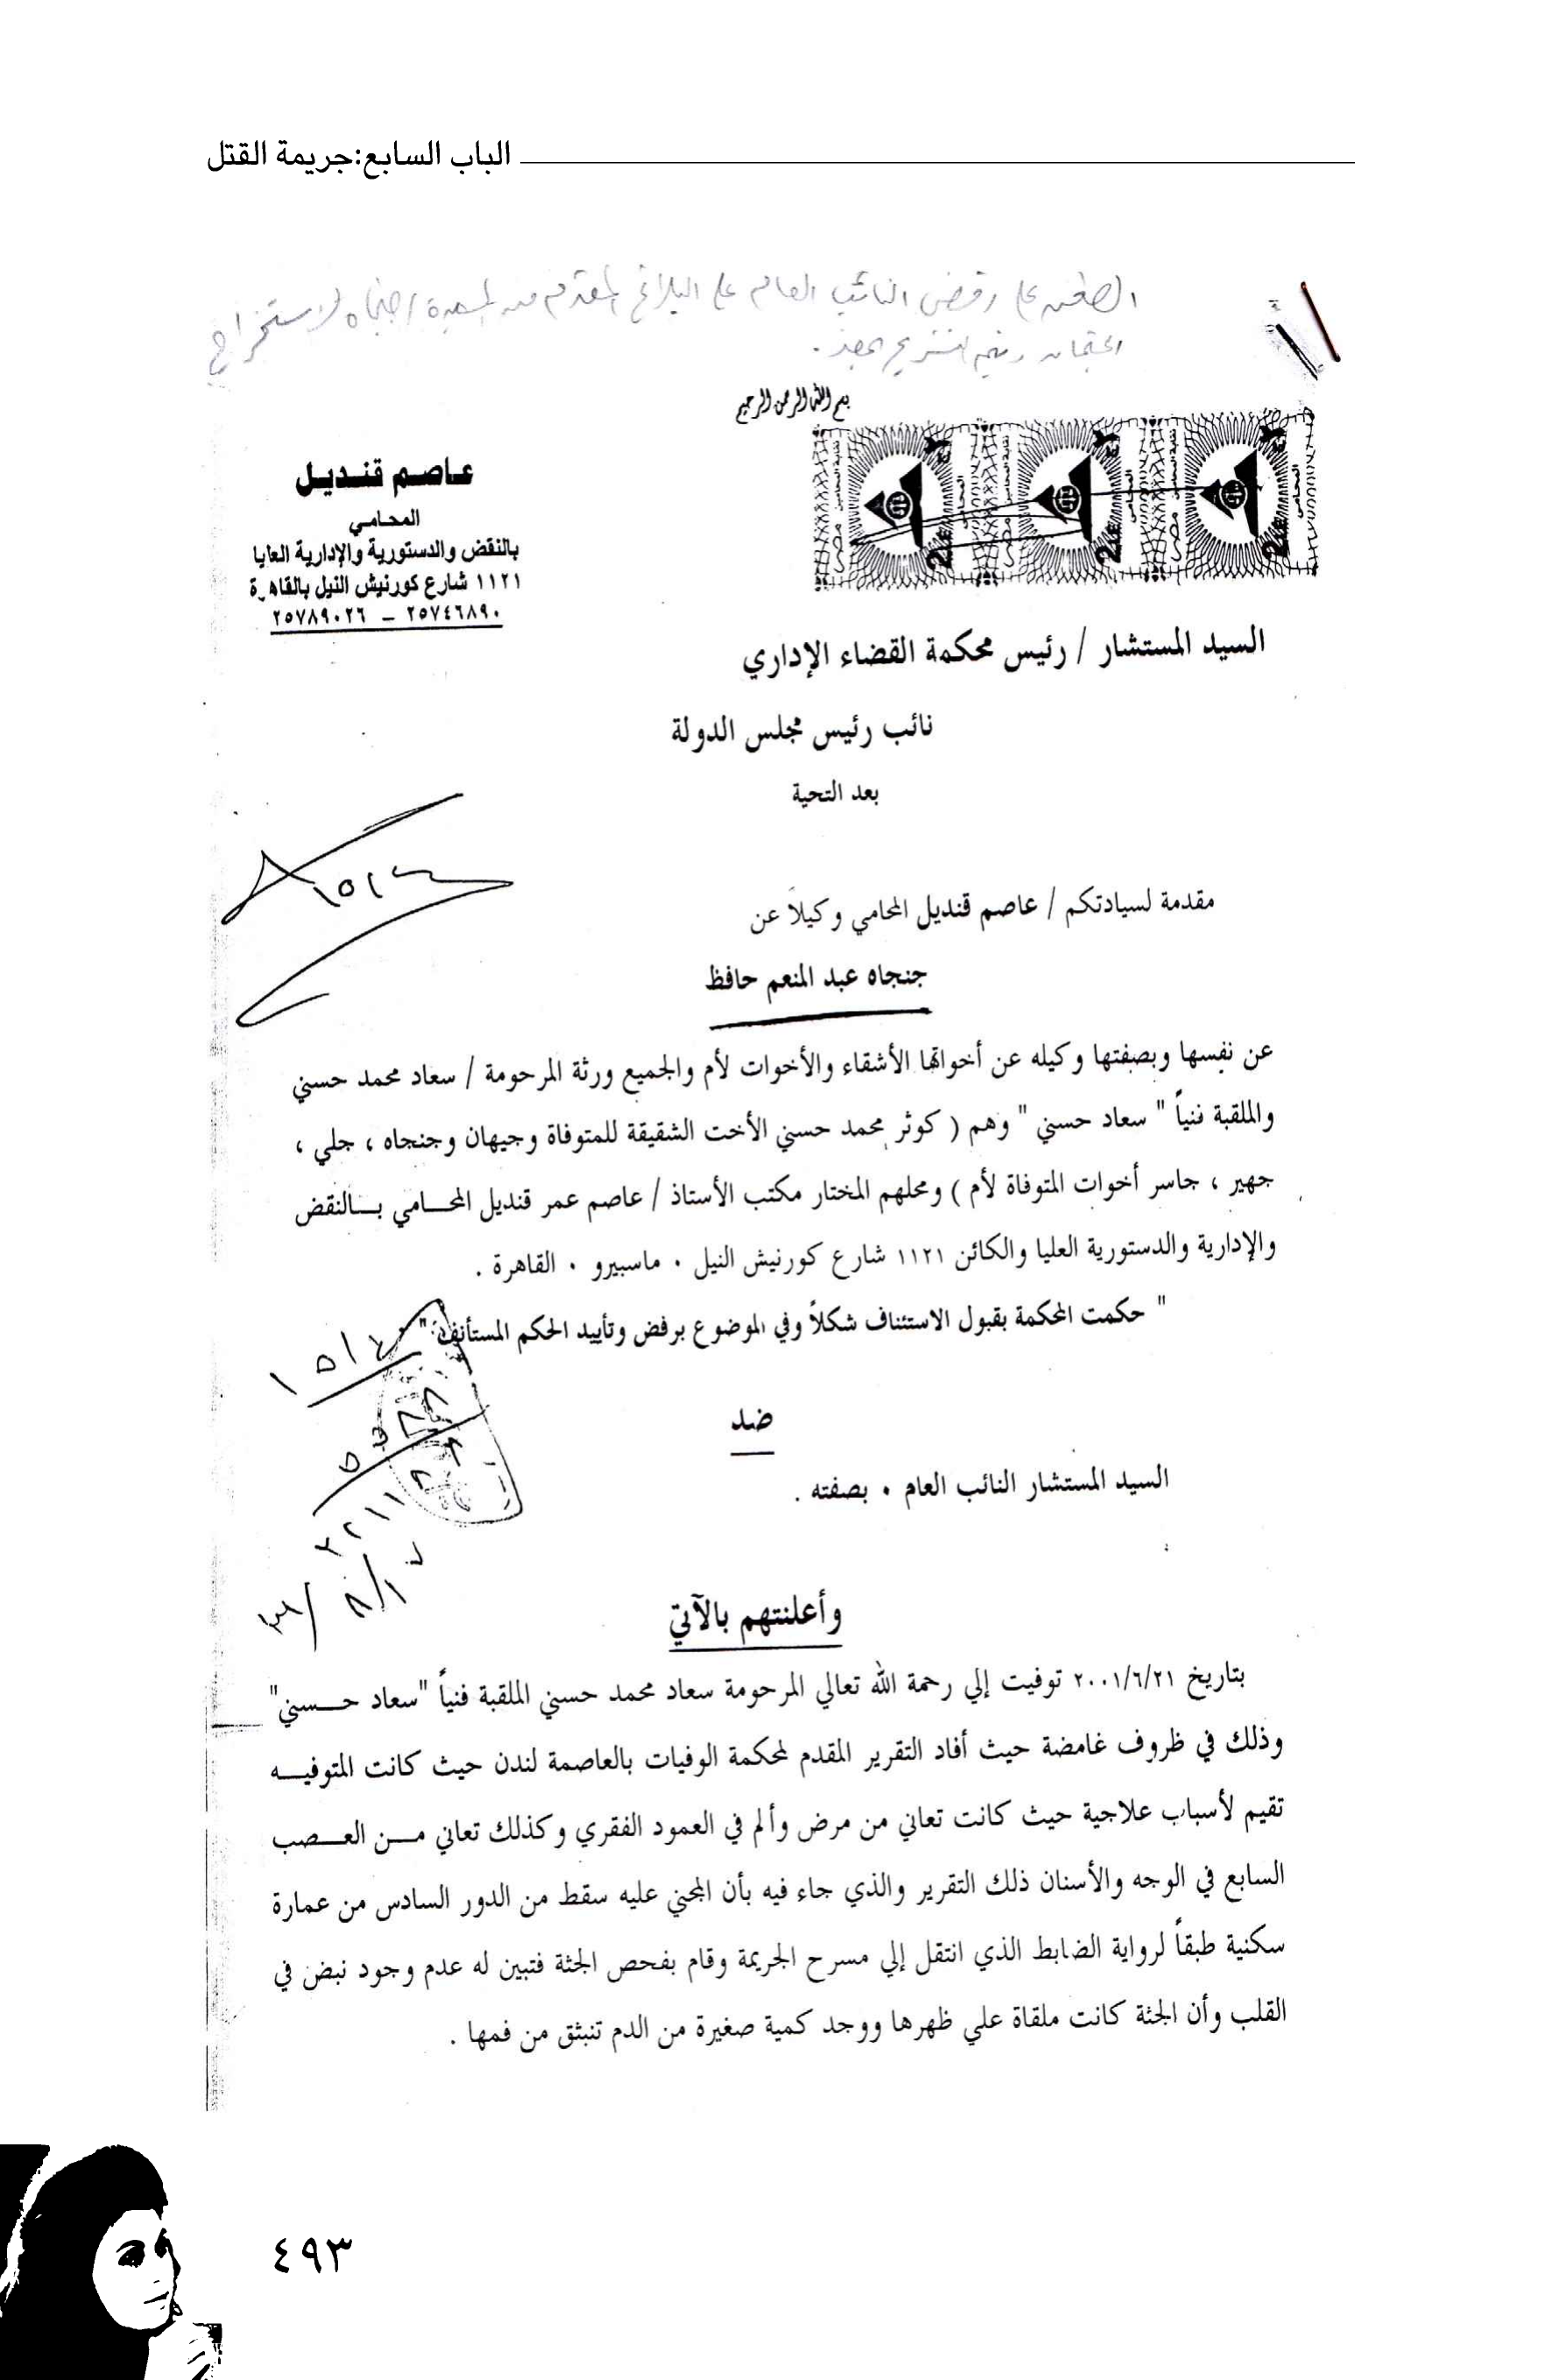 الباب السابع:جريمة القتل
الطعن على رفض النائب العام على البلاغ المقدم من السيدة جنجاه لاستخراج
الجثمان
بسم الله الرحمن الرحيم
عاصم قنديل
المحامي
بالنقض والدستورية والإدارية العليا
١١٢١ شارع كورنيش النيل بالقاهرة
٢٥٧٤٦٨٩٠ – ٢٥٧٨٩٠٢٦
السيد المستشار / رئيس محكمة القضاء الإداري
نائب رئيس مجلس الدولة
بعد التحية
مقدمة لسيادتكم / عاصم قنديل المحامي وكيلاً عن
جنجاه عبد المنعم حافظ
عن نفسها وبصفتها وكيله عن أخواتها الأشقاء والأخوات لأم والجميع ورثة المرحومة / سعاد محمد حسني
والملقبة فنياً " سعاد حسني " وهم ( كوثر محمد حسني الأخت الشقيقة للمتوفاة وجيهان وجنجاه ، جلي ،
جهير ، جاسر أخوات المتوفاة لأم ) ومحلهم المختار مكتب الأستاذ / عاصم عمر قنديل المحامي بالنقض
والإدارية والدستورية العليا والكائن ١١٢١ شارع كورنيش النيل ٠ ماسبيرو ٠ القاهرة .
" حكمت المحكمة بقبول الاستئناف شكلاً وفي الموضوع برفض وتأييد الحكم المستأنف "
ضد
السيد المستشار النائب العام ٠ بصفته .
وأعلنتهم بالآتي
بتاريخ ٢٠٠١/٦/٢١ توفيت إلي رحمة الله تعالي المرحومة سعاد محمد حسني الملقبة فنياً "سعاد حسني"
وذلك في ظروف غامضة حيث أفاد التقرير المقدم لمحكمة الوفيات بالعاصمة لندن حيث كانت المتوفيه
تقيم لأسباب علاجية حيث كانت تعاني من مرض وألم في العمود الفقري وكذلك تعاني من العصب
السابع في الوجه والأسنان ذلك التقرير والذي جاء فيه بأن المجني عليه سقط من الدور السادس من عمارة
سكنية طبقاً لرواية الضابط الذي انتقل إلي مسرح الجريمة وقام بفحص الجثة فتبين له عدم وجود نبض في
القلب وأن الجثة كانت ملقاة علي ظهرها ووجد كمية صغيرة من الدم تنبثق من فمها .
٤٩٣